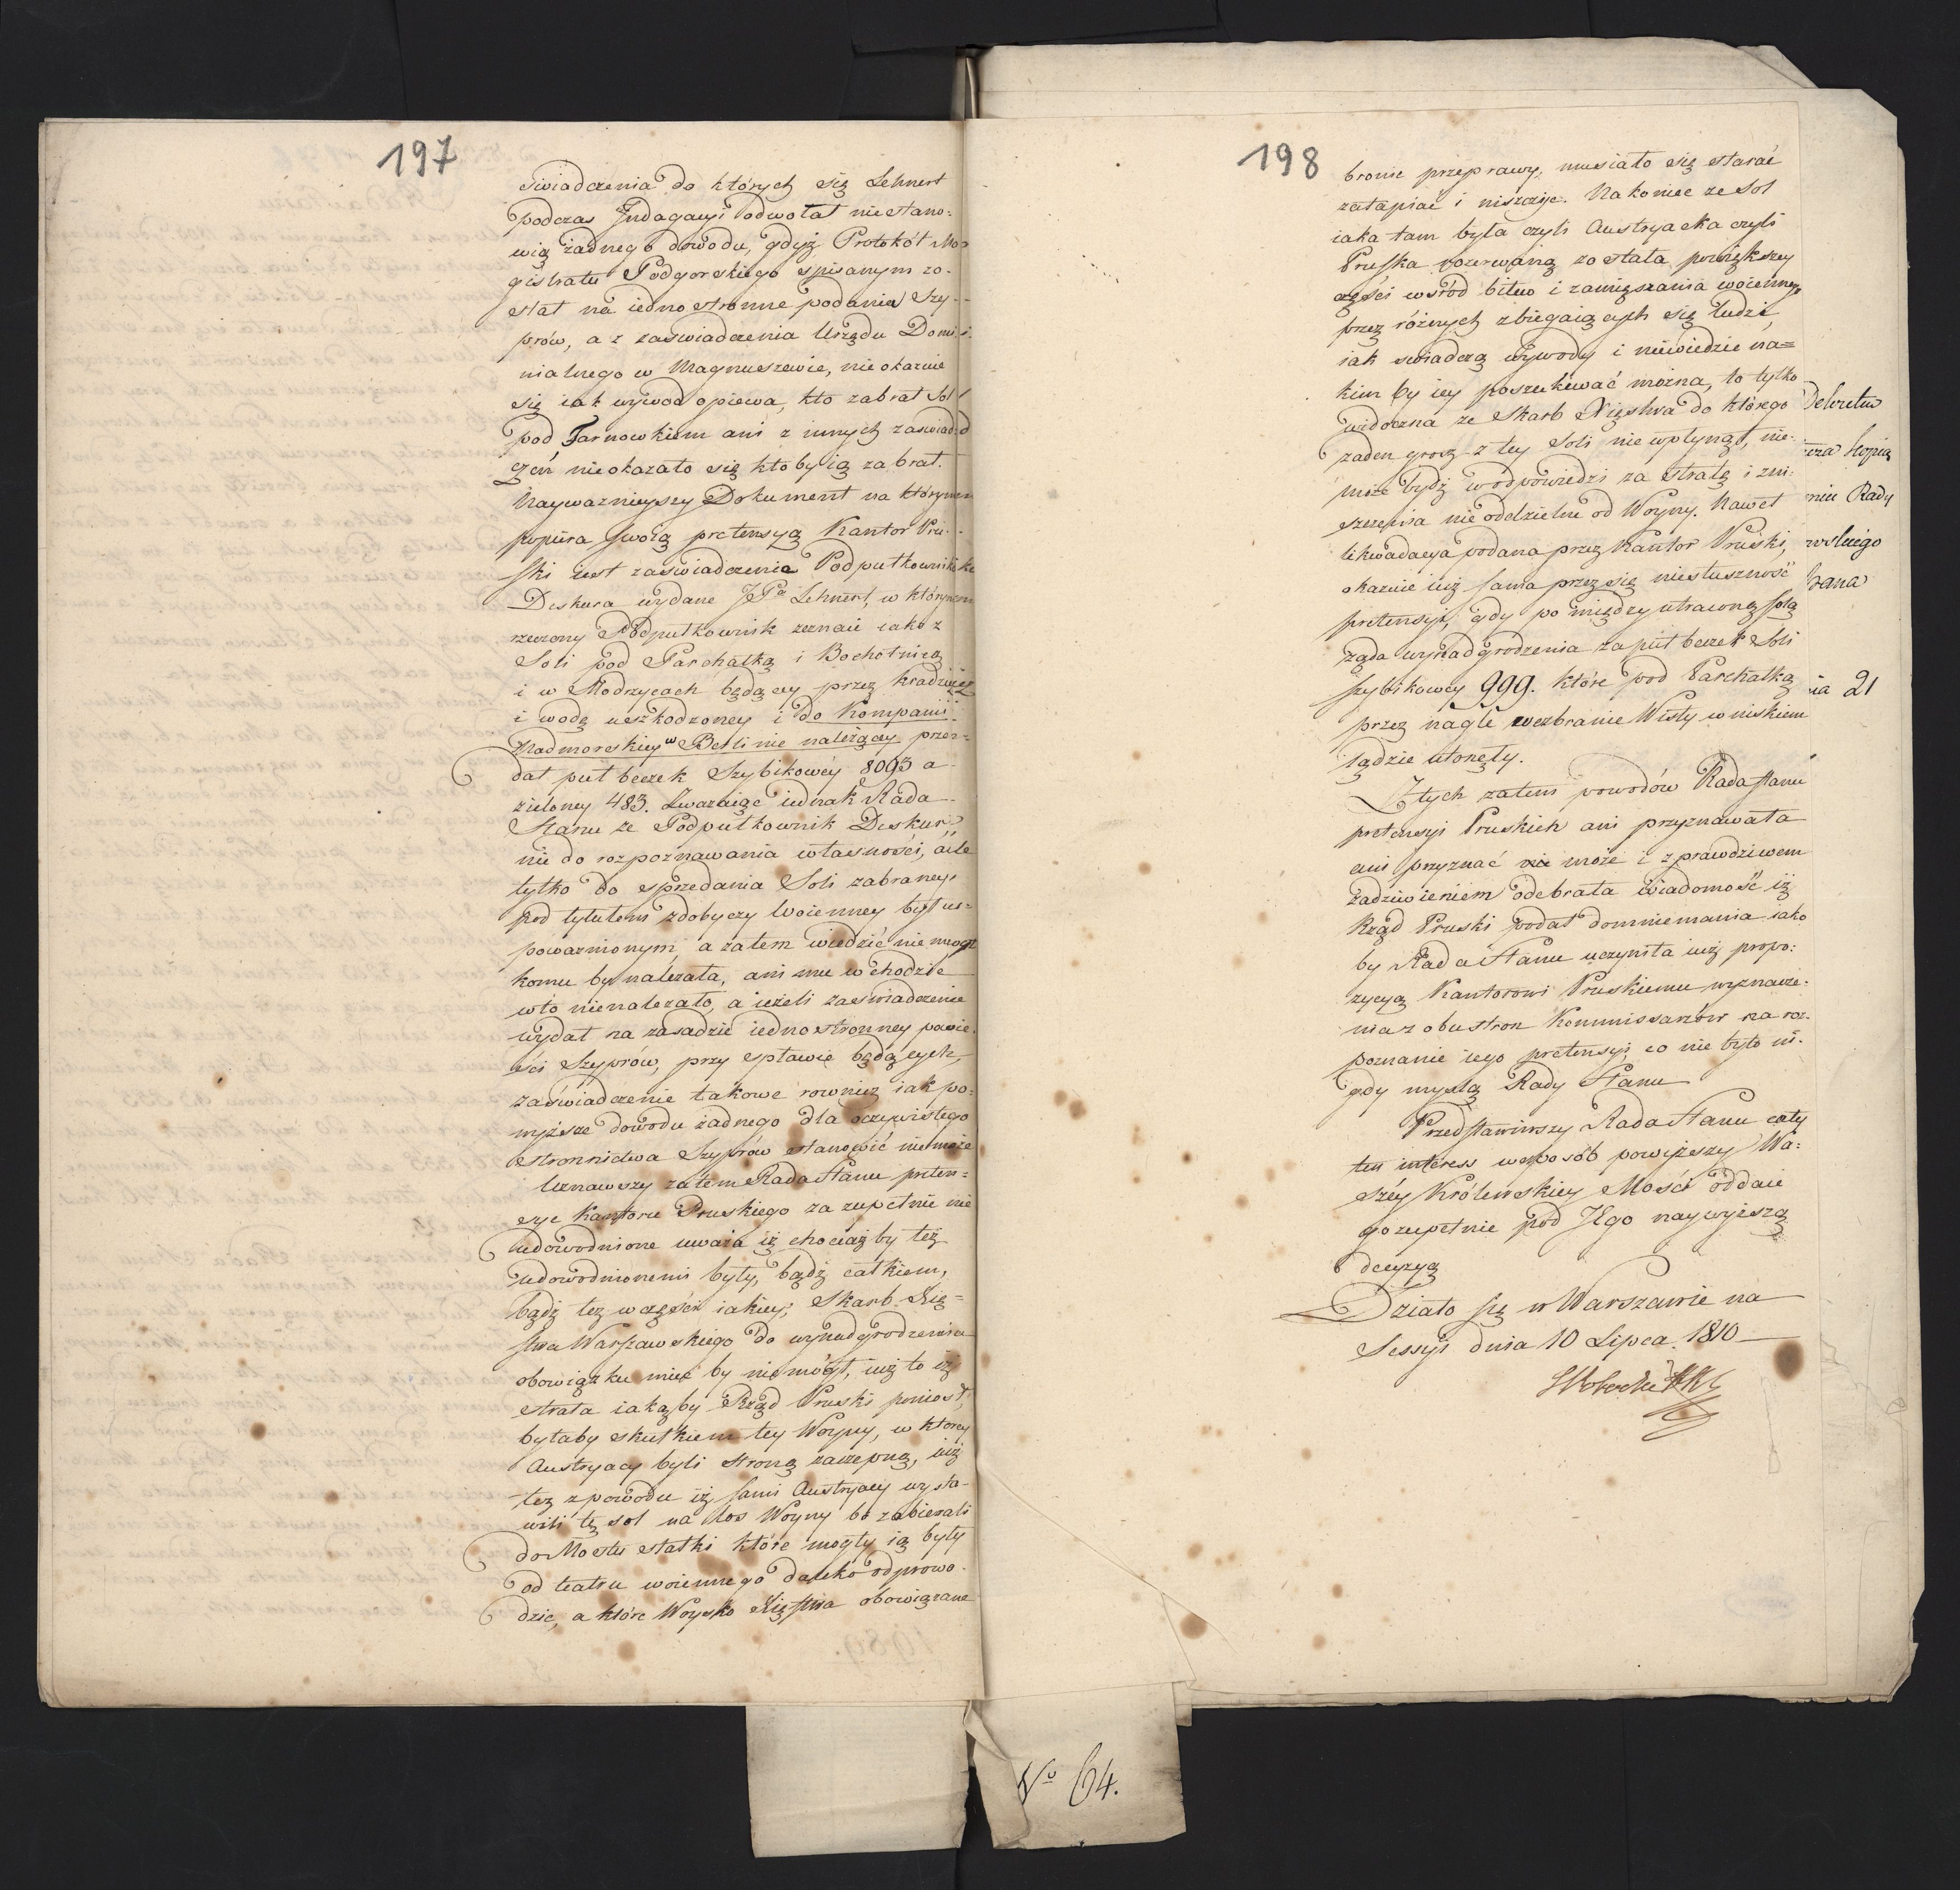 197
swiadczenia do których się Lehnert
podczas Indagacyi odwołał niestano=
wią żadnego dowodu, gdyż Protokół Ma=
gistratu Podgorskiego spisanym zo-
stał na iednostronne podania Szy-
prów, a z zaswiadczenia Urzędu Domi-
nialnego w Magnuszewie, nie okazuie
się iak wywod opiewa, kto zabrał Sol
pod Tarnowkiem ani z innych zaswiad-
czeń nieokazało się kto by ią zabrał.
Naywazniejszy Dokument na którym
popiera swoią pretensyą Kantor Pru-
ski iest zaswiadczenie Podpułkownika
Deskura wydane JPa Lehnert, w którym
rzeczony Podpułkownik zeznaie iako z
Soli pod Parchatką i Bochotnicą
i w Modrzycach będącey przez kradzież
i wodę uszkodzoney i do Kompanii
Nadmorskiey w Berlinie należącey przen=
dał puł beczek Szybikowéy 8093 a
zieloney 483. Zwazaiąc iednak Rada
Stanu że Podpułkownik Deskur,
nie do rozpoznawania własności, ale
tylko do sprzedania Soli zabraney
pod tytułem zdobyczy Woienney był u=
poważnionym, a zatem wiedzić nie mógł
komu by należała, ani mu wchodzić
w to nienależało, a ieżeli zaswiadczenie
wydał na zasadzie iednostronney powie-
ści Szyprów, przy spławie będących,
zaświadczenie takowe rownież iak po=
wyższe dowodu żadnego dla oczywistego
stronnictwa Szyprów stanowić niemoże
Uznawszy zatem Rada Stanu preten=
sye Kantoru Pruskiego za zupełnie nie
udowodnione uważa iż chociażby też
udowodnionemi były, bądź całkiem,
bądź też w części iakiey; Skarb Xię=
stwa Warszawskiego do wynadgrodzenia
obowiązku mieć by nie mógł, iuż to iż
strata iakąby Rząd Pruski poniosł,
byłaby skutkiem tey Woyny, w ktorey
Austryacy byli stroną zaczepną, iuż
też z powodu iż sami Austryacy wysta-
wili tę sol na los Woyny bo zabierali
do Mostu statki które mogły ią były
od teatru woiennego daleko odprowa-
dzić, a które Woysko Xięstwa obowiązane
198
bronie przeprawy, musiało się starać
zatapiać i niszczyć. Nakoniec ze Sol
iaka tam była czyli Austryacka czyli
Pruska rozerwaną została powiększey
części wśród bitew i zamięszania woiennego
przez różnych zbiegaiących się ludzi,
iak swiadczą wywody i niewiedzie na=
kim by iey poszukiwać można, to tylko
widoczna ze Skarb Xięstwa do którego
żaden grosz z tey Soli nie wpłynął, nie-
może bydź w odpowiedzi za stratę i zni-
szczenia nieoddzielne od Woyny. Nawet
likwidacya podana przez Kantor Pruski,
okazuie iuż sama przez się niesłuszność
pretensyi, gdy pomiędzy utraconą solą
żąda wynadgrodzenia za puł beczek Soli
Szybikowey 999. które pod Parchatką
przez nagłe wezbranie Wisły w niskiem
lądzie utonęły.
Z tych zatem powodów Rada Stanu
pretensyi Pruskich ani przyznawała
ani przyznać nie może i z prawdziwem
zadziwieniem odebrała wiadomość iż
Rząd Pruski podał domniemania iako
by Rada Stanu uczyniła iuż propo-
zycyą Kantorowi Pruskiemu wyznacze-
nia z obustron Kommissarzów na roz-
poznanie iego pretensyi, co nie było ni-
gdy myslą Rady Stanu
Przedstawiwszy Rada Stanu cały
ten interess w sposób powyższy Wa-
széy Królewskiey Mości oddaie
go zupełnie pod Jego naywyższą
decyzyą
Działo się w Warszawie na
Sessyi dnia 10 Lipca 1810
Dekretu
Kopią
Rady
21
No 64.